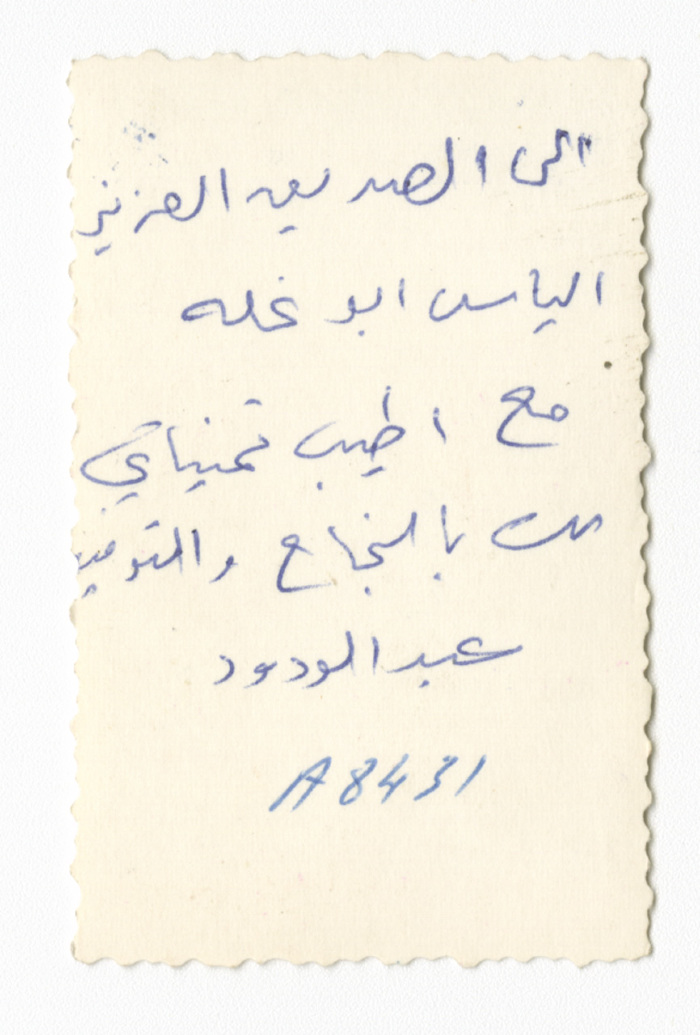 الى الصديق العزيز
الياس ابو نخله
مع اطيب تمنياتي
لك بالنجاح والتوفيق
عبد الودود
A 8431